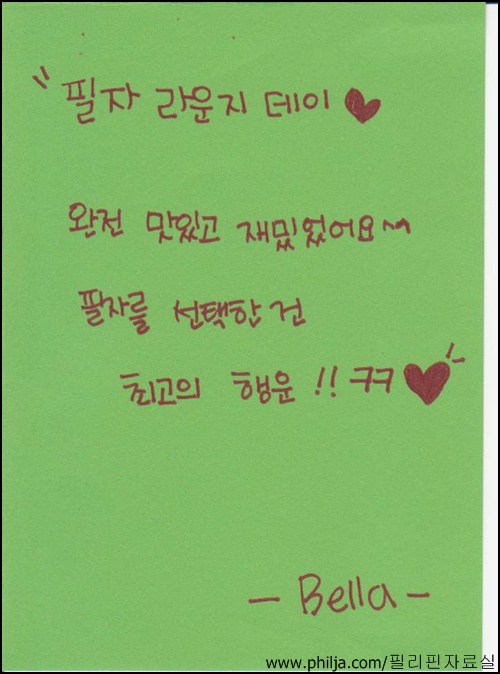 " 필자 라운지 데이 ♥
완전 맛있고 재밌었어요~
필자를 선택한 건
최고의 행운 !! ㅋㅋ ♥
- Bella -
www.philja.com/필리핀자료실